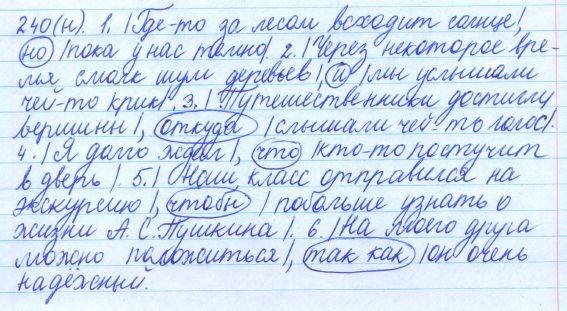 240(н). 1. |Где-то за лесом всходит солнце|,
но |пока у нас темно|. 2. |Через некоторое вре-
мя смолк шум деревьев|, и |мы услышали
чей-то крик|. 3. |Путешественники достигли
вершины|, откуда |слышали чей-то голос|.
4. |Я долго ждал|, что |кто-то постучит
в дверь|. 5. |Наш класс отправился на
экскурсию|, чтобы |побольше узнать о
жизни А.С.Пушкина|. 6. |На моего друга
можно положиться|, так как |он очень
надёжный.